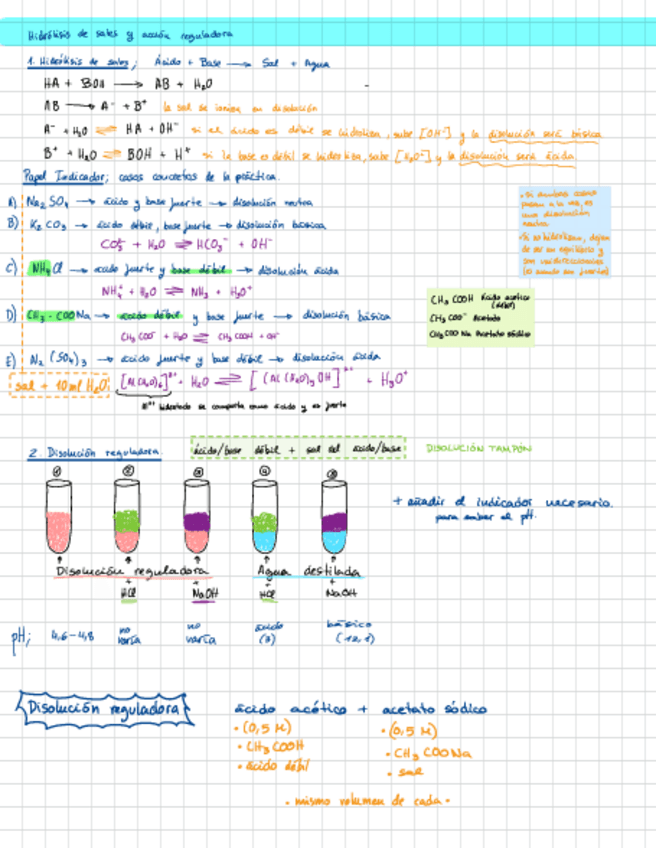 Hidrólisis de sales y acción reguladora
1. Hidrólisis de sales; Ácido + Base → Sal + Agua
HA + BOH → AB + H₂O
AB → A⁻ + B⁺ la sal se ioniza en disolución
A⁻ + H₂O ⇌ HA + OH⁻ si el ácido es débil se hidroliza, sube [OH⁻] y la disolución será básica
B⁺ + H₂O ⇌ BOH + H⁺ si la base es débil se hidroliza, sube [H₃O⁺] y la disolución será ácida
Papel Indicador; casos concretos de la práctica.
A) Na₂SO₄ → ácido y base fuerte → disolución neutra
B) K₂CO₃ → ácido débil, base fuerte → disolución básica
CO₃²⁻ + H₂O ⇌ HCO₃⁻ + OH⁻
C) NH₄Cl → ácido fuerte y base débil → disolución ácida
NH₄⁺ + H₂O ⇌ NH₃ + H₃O⁺
D) CH₃-COONa → ácido débil y base fuerte → disolución básica
CH₃COO⁻ + H₂O ⇌ CH₃COOH + OH⁻
E) (SO₄)₃ → ácido fuerte y base débil → disolución ácida
sal + 10ml H₂O
[Al(H₂O)₆]³⁺ + H₂O ⇌ [(Al(H₂O)₅OH] + H₃O⁺
hidratado se comporta como ácido y es fuerte
si ambas cosas
pasan a la vez, es
una disolución
neutra
si se hidrolizan, dejan
de ser un equilibrio y
son unidireccionales
CH₃COOH Ácido acético
(débil)
CH₃COO⁻ Acetato
CH₃COONa Acetato sódico
2. Disolución reguladora.
ácido/base débil + sal del ácido/base
DISOLUCIÓN TAMPÓN
① ② ③ ④ ⑤
+ añadir el indicador necesario.
para saber el pH.
Disolución reguladora Agua destilada
+ + + +
HCl NaOH HCl NaOH
pH; 4,6-4,8 no varía no varía ácido (3) básico (12,1)
Disolución reguladora
ácido acético + acetato sódico
· (0,5 M) · (0,5 M)
· CH₃COOH · CH₃COONa
· ácido débil · sal
· mismo volumen de cada ·